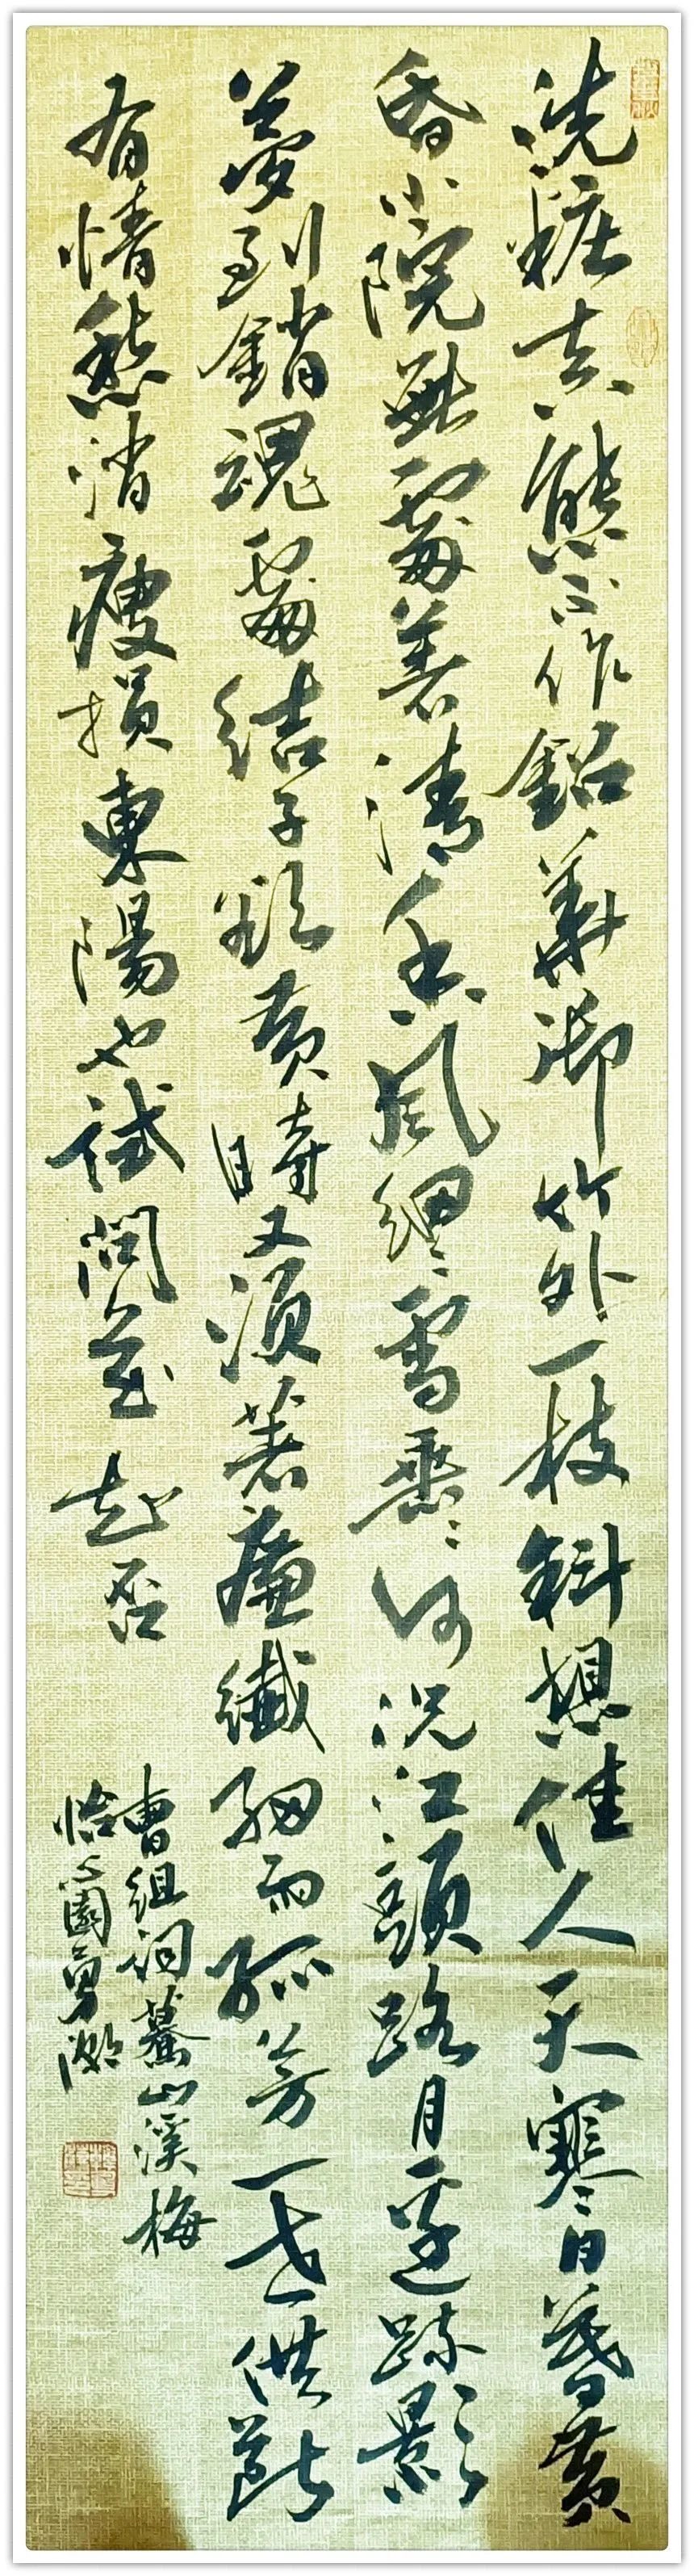 洗糚真態不作鉛華御竹外一枝斜想佳人天寒日暮黄
昏小院無處著清香風細細雪垂垂何況江頭路月邊疎影
夢到銷魂處結子欲黄時又須著廉纖細雨孤芳一世供斷
有情愁消瘦損東陽也試問花知否
曹組詞驀山溪梅
怡心園勇